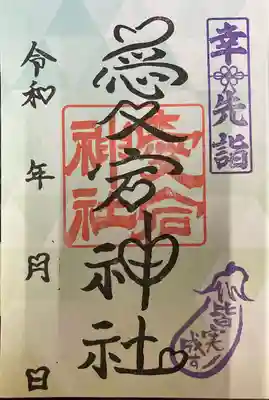 幸先詣
愛宕神社
愛宕
神社
令和 年 月 日
皆
笑